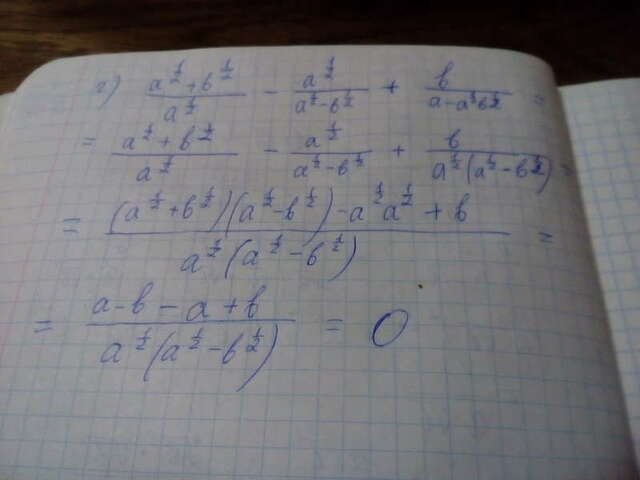 г) (a^{1/2} + b^{1/2})/(a^{1/2}) - (a^{1/2})/(a^{1/2} - b^{1/2}) + (b)/(a - a^{1/2}b^{1/2}) =
= (a^{1/2} + b^{1/2})/(a^{1/2}) - (a^{1/2})/(a^{1/2} - b^{1/2}) + (b)/(a^{1/2}(a^{1/2} - b^{1/2})) =
= ((a^{1/2} + b^{1/2})(a^{1/2} - b^{1/2}) - a^{1/2}a^{1/2} + b)/(a^{1/2}(a^{1/2} - b^{1/2})) =
= (a - b - a + b)/(a^{1/2}(a^{1/2} - b^{1/2})) = 0